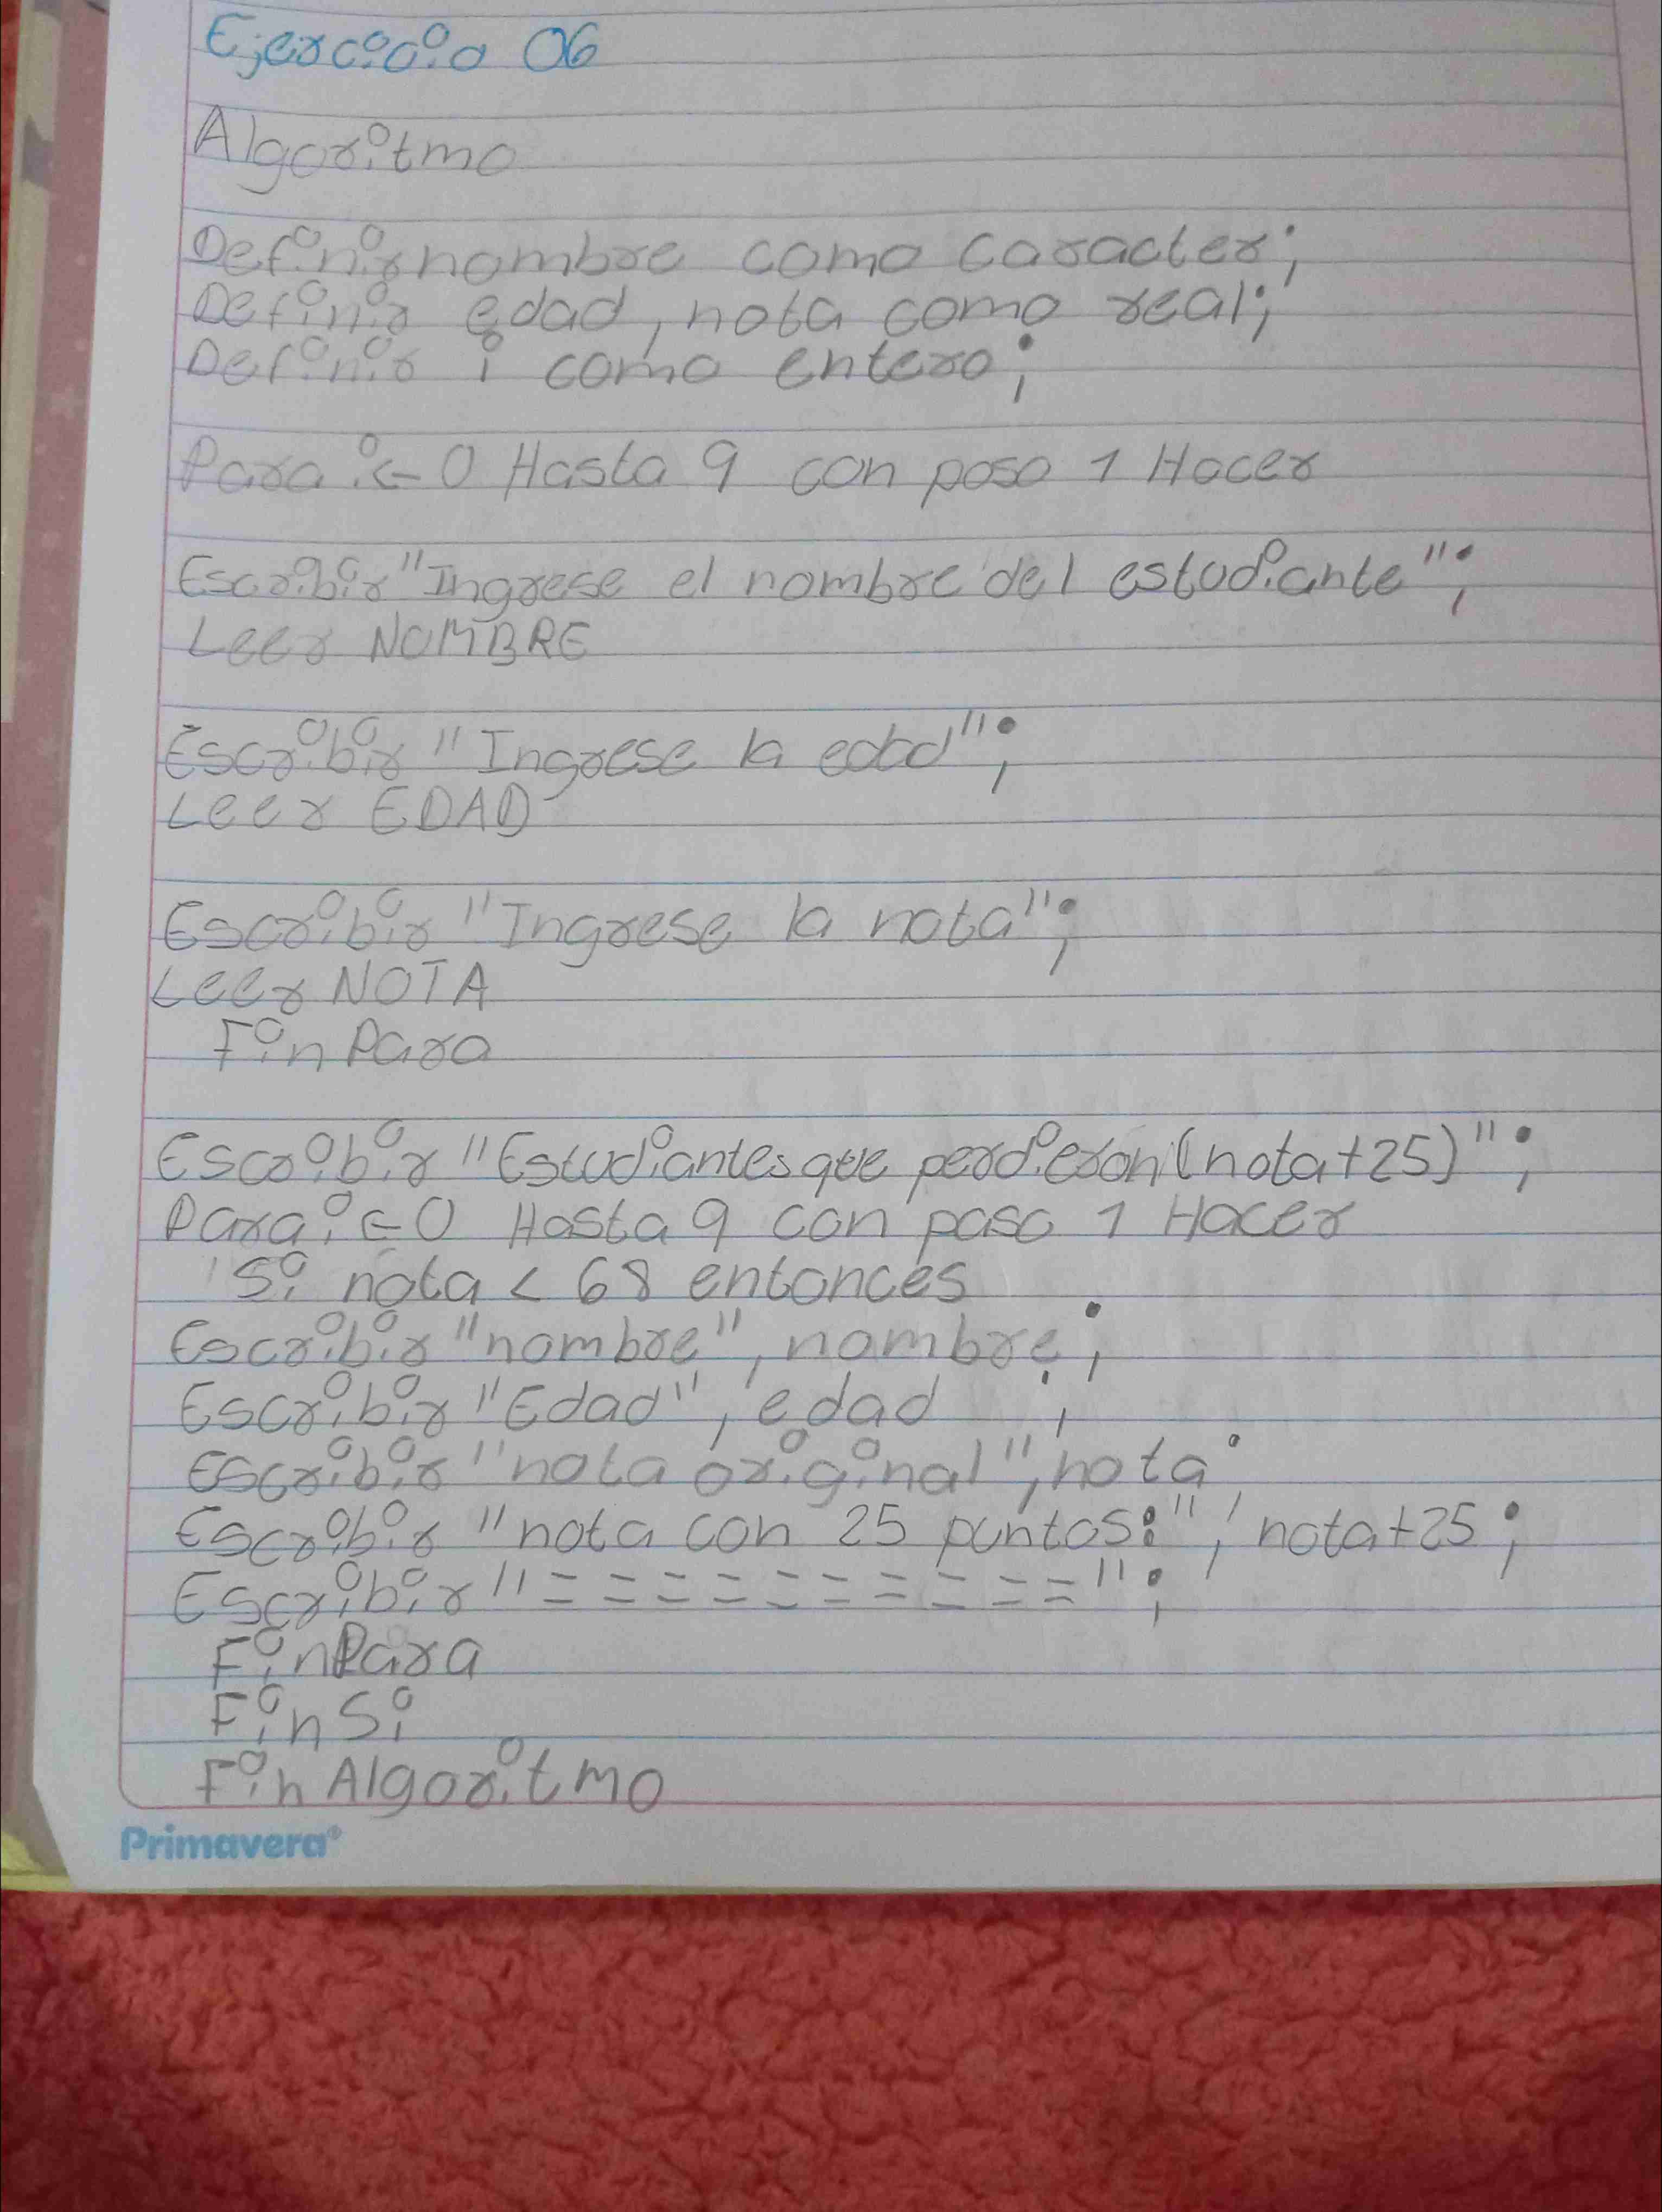 Ejercicio 06
Algoritmo
Definir nombre como caracter;
Definir edad, nota como real;
Definir i como entero;
Para i ← 0 Hasta 9 con paso 1 Hacer
Escribir "Ingrese el nombre del estudiante";
Leer NOMBRE
Escribir "Ingrese la edad";
Leer EDAD
Escribir "Ingrese la nota";
Leer NOTA
Fin Para
Escribir "Estudiantes que perdieron (nota+25)";
Para i ← 0 Hasta 9 con paso 1 Hacer
Si nota < 68 entonces
Escribir "nombre", nombre;
Escribir "Edad", edad ;
Escribir "nota original", nota;
Escribir "nota con 25 puntos:", nota+25;
Escribir "==========";
Fin Para
Fin Si
Fin Algoritmo
Primavera®